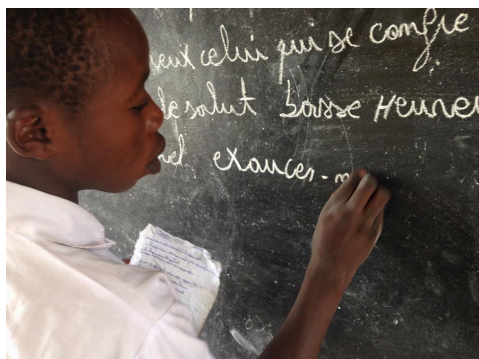 eux celui qui se confie
le salut basse Heureu
nel exauces-m